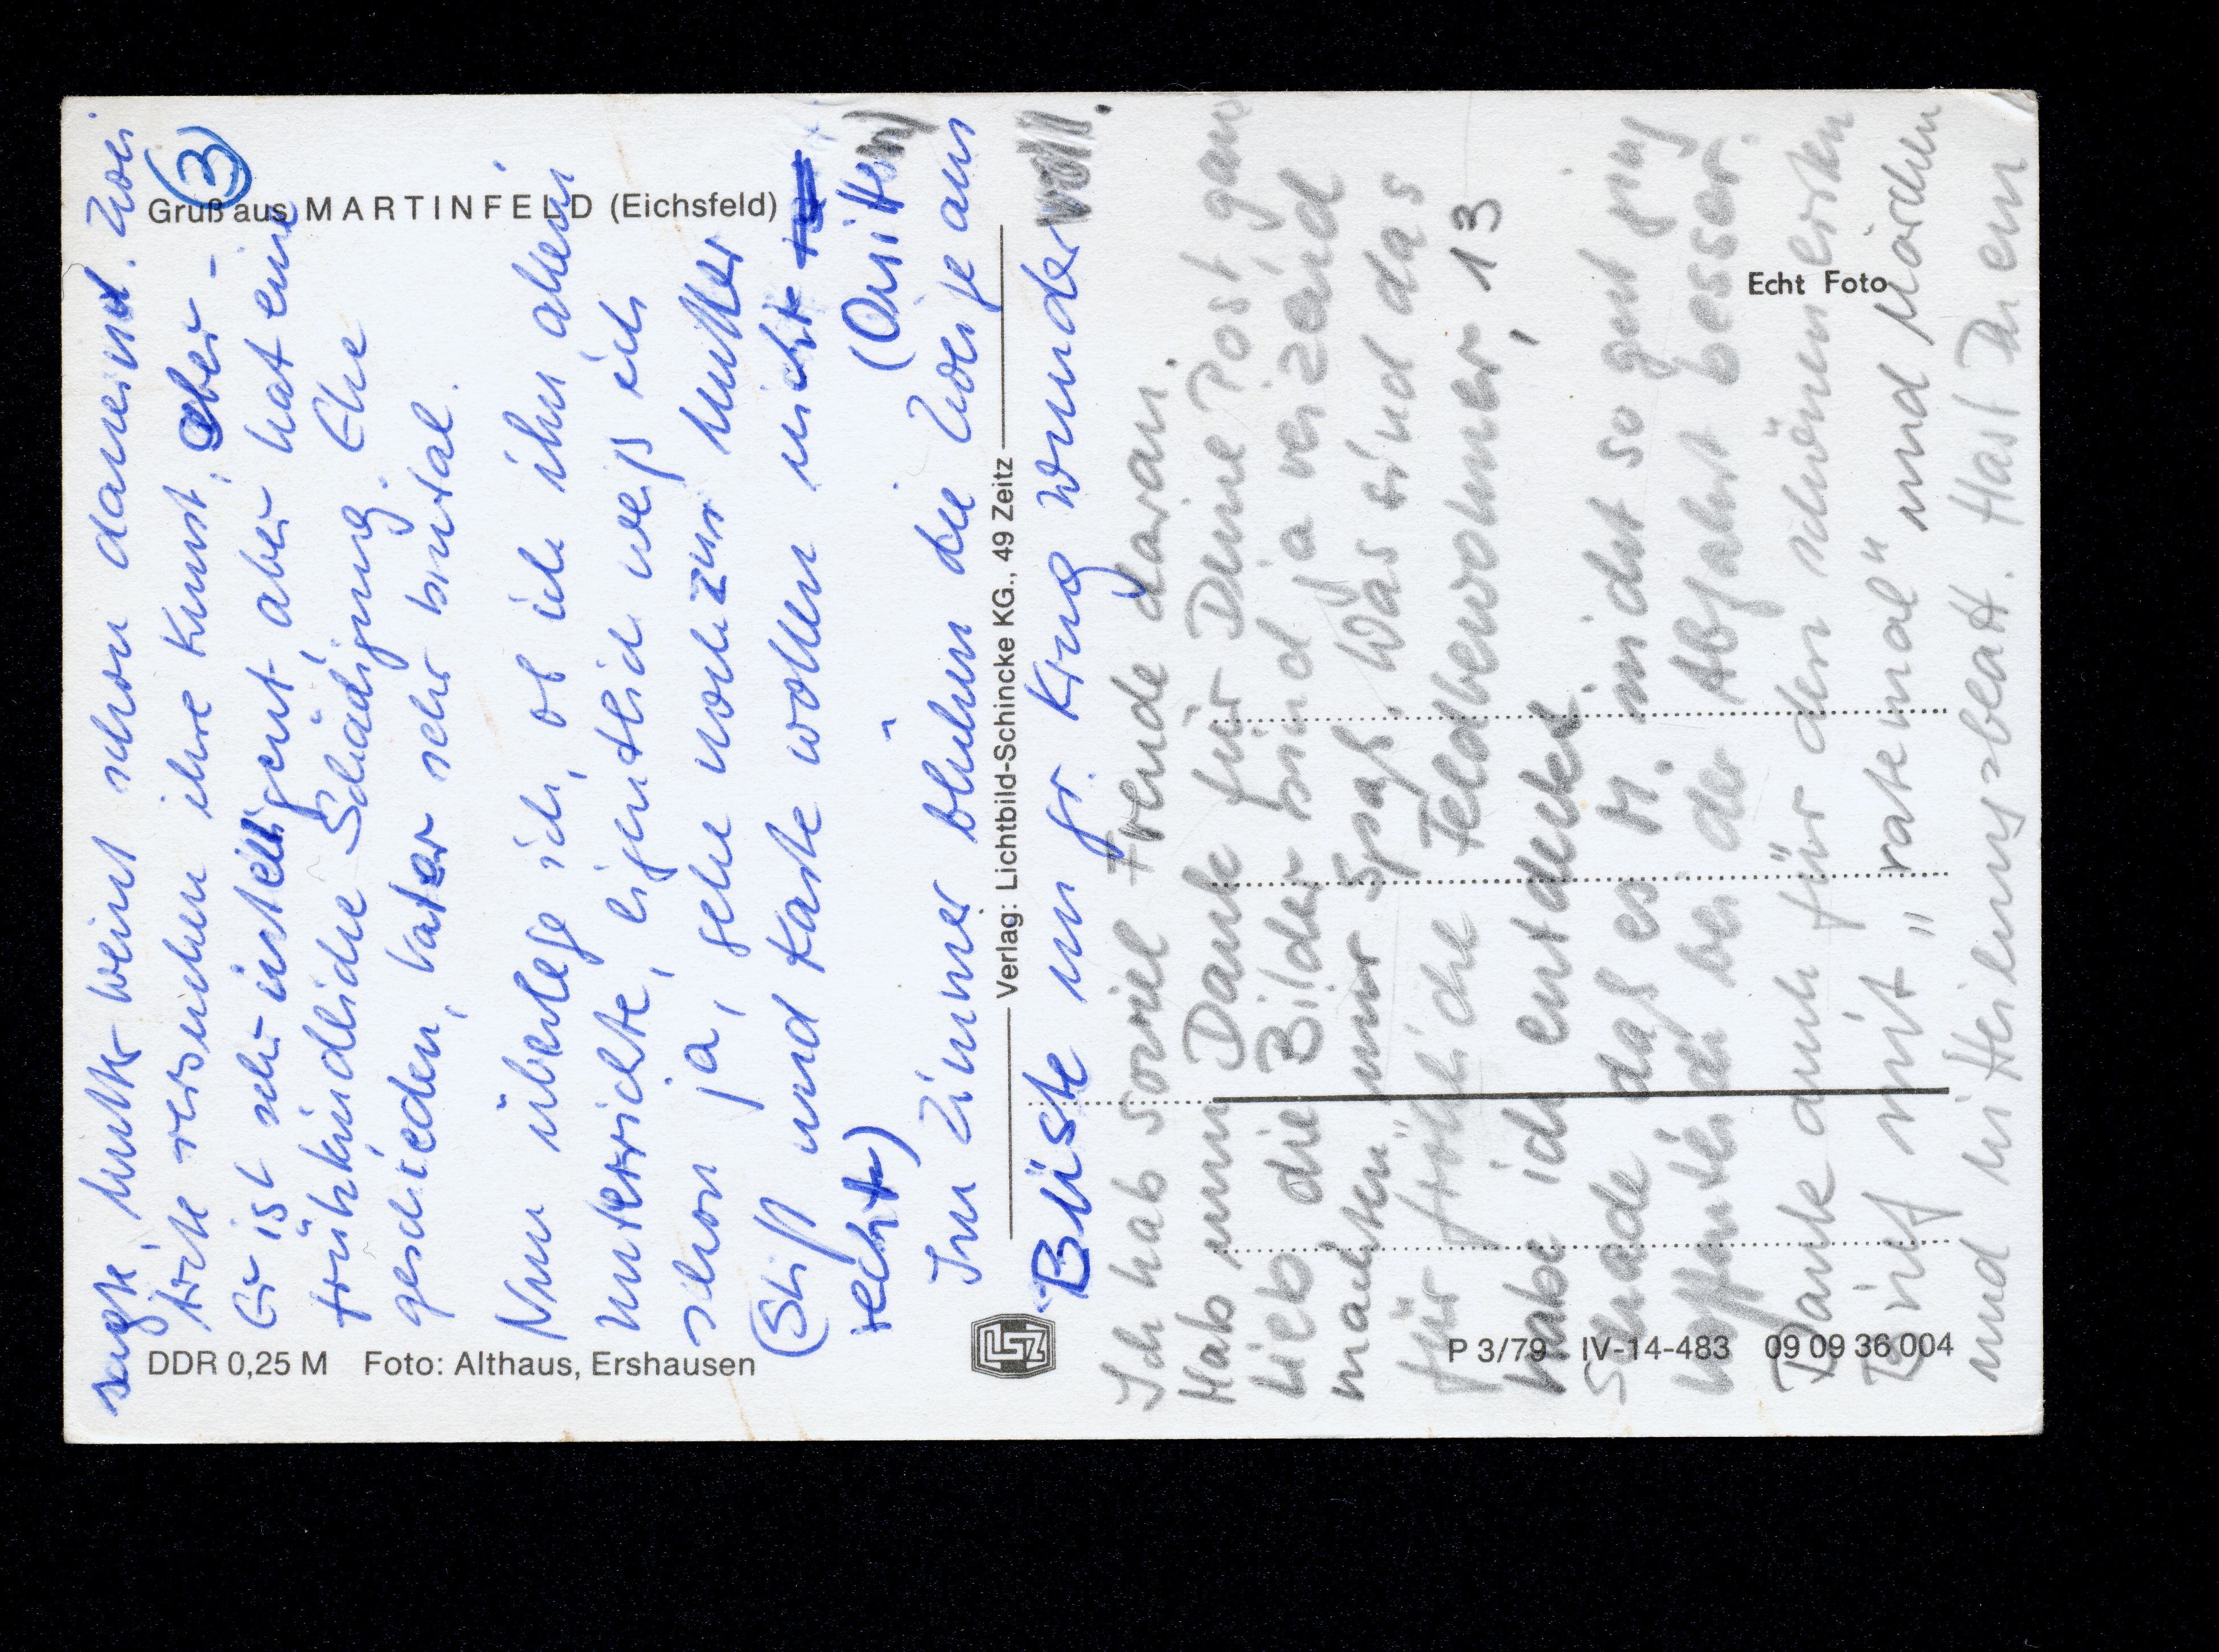 ③
sagt, Mutter weint schon dauernd. Zwei
Ärzte versuchen ihre Kunst, aber -
Er ist sehr intelligent, aber hat eine
frühkindliche Schädigung. Ehe
geschieden, Vater sehr brutal.
Nun überlege ich, ob ich ihn allein
unterrichte, eigentlich weiß ich
schon ja, gehe noch zur Mutter
(Stift und Karte wollen nicht
recht) (Quitten)
Im Zimmer blühen die Zweige am
Büste im gr. Krug wundervoll.
Ich hab soviel Freude daran.
Hab nun Dank für Deine Post, ganz
lieb die Bilder sind ja reizend
machten mir Spaß. Was sind das
für fröhliche Feldbewohner, 13
habe ich entdeckt.
Schade daß es M. nicht so gut ging
hoffentlich bei der Abfahrt besser.
Danke auch für den schönen ersten
Brief mit „rate mal" und Märchen
und im Heilungsblatt. Hast Du ein
Gruß aus MARTINFELD (Eichsfeld)
Echt Foto
Verlag: Lichtbild-Schincke KG., 49 Zeitz
LSZ
DDR 0,25 M Foto: Althaus, Ershausen
P 3/79 IV-14-483 09 09 36 004